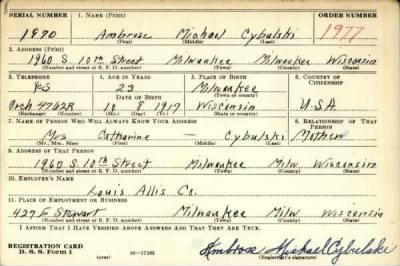 SERIAL NUMBER 1. NAME (Print) ORDER NUMBER
1970 Ambrose Michael Cybulski 1977
(First) (Middle) (Last)
2. ADDRESS (Print)
1960 S. 10th Street Milwaukee Milwaukee Wisconsin
(Number and street or R. F. D. number) (Town) (County) (State)
3. TELEPHONE 4. AGE IN YEARS 5. PLACE OF BIRTH 6. COUNTRY OF CITIZENSHIP
Yes 23 Milwaukee
DATE OF BIRTH (Town or county)
Orch 4762R 10 8 1917 Wisconsin U.S.A
(Exchange) (Number) (Mo.) (Day) (Yr.) (State or country)
7. NAME OF PERSON WHO WILL ALWAYS KNOW YOUR ADDRESS 8. RELATIONSHIP OF THAT PERSON
Mrs Catherine — Cybulski Mother
(Mr., Mrs., Miss) (First) (Middle) (Last)
9. ADDRESS OF THAT PERSON
1960 S. 10th Street Milwaukee Milw. Wisconsin
(Number and street or R. F. D. number) (Town) (County) (State)
10. EMPLOYER'S NAME
Louis Allis Co.
11. PLACE OF EMPLOYMENT OR BUSINESS
427 E Stewart Milwaukee Milw. Wisconsin
(Number and street or R. F. D. number) (Town) (County) (State)
I AFFIRM THAT I HAVE VERIFIED ABOVE ANSWERS AND THAT THEY ARE TRUE.
REGISTRATION CARD
D. S. S. Form 1 (over) Ambrose Michael Cybulski
(Registrant's signature)